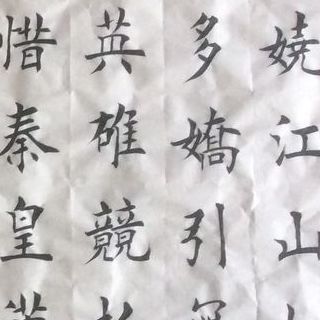 嬈江山
多嬌引
英雄競
惜秦皇